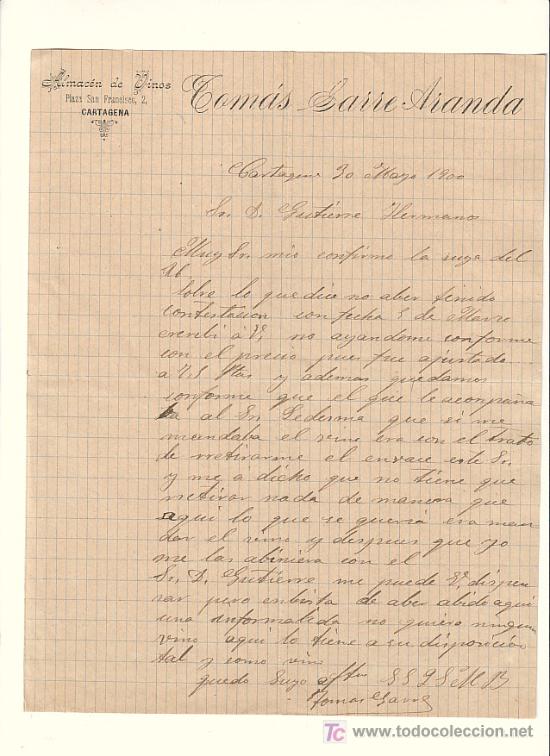 Almacén de Vinos
Plaza San Francisco, 2,
CARTAGENA
Tomás Garre Aranda
Cartagena 30 Mayo 1900
Sr. D. Gutierre Hermanos
Muy Sr. mio confirmo la suya del
26
Sobre lo que dice no aber tenido
contestacion con fecha 5 de Marzo
escribi á V, no ayandome conforme
con el precio pues fue ajustado
a Ptas y ademas quedamos
conforme que el que le aconpaña
ba al Sr Ledesma que si me
mandaba el vino era con el trato
de rretirarme el envace este Sr.
y me á dicho que no tiene que
rretirar nada de manera que
aqui lo que se queria era man
dar el vino y despues que yo
me las abiniera con el
Sr. D. Gutierre me puede V. dispen
sar pero enbista de aber abido aqui
una informalida no quiero ningun
vino aqui lo tiene a su disposicion
tal y como vino
quedo suyo affmo S S Q S M B
Tomas Garre
todocoleccion
www.todocoleccion.net